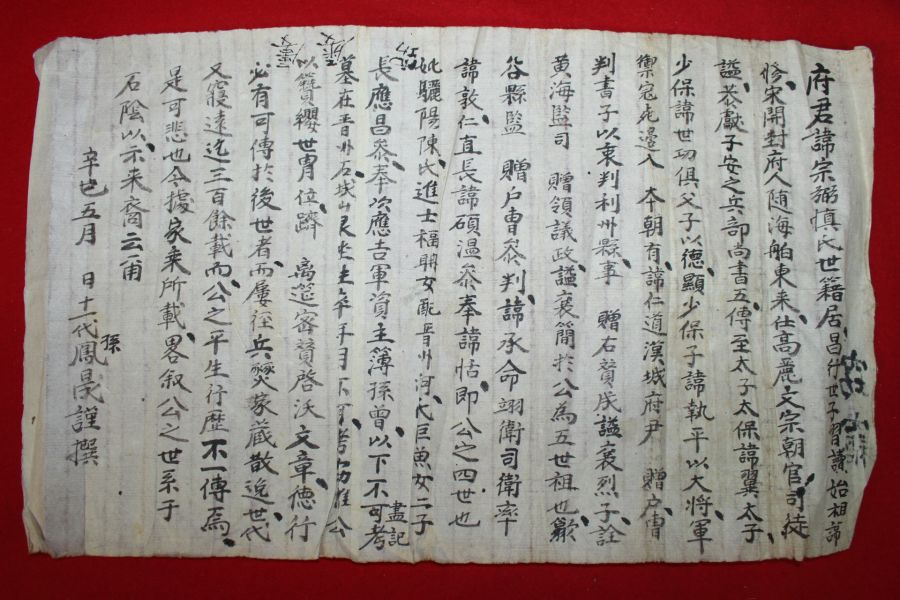 府君諱宗弼愼氏世籍居昌始相諱
修宋開封府人随海舶東来仕高麗文宗朝官司徒
謚恭獻子安之兵部尚書五傳至太子太保諱翼太子
少保諱世功俱父子以德顯少保子諱執平以大將軍
禦寇死邊入 本朝有諱仁道漢城府尹 贈户曹
判書子以衷判利州縣事 贈右贊成謚襄烈子詮
黄海監司 贈領議政謚襄簡於公為五世祖也歙
谷縣監 贈户曹叅判諱承命翊衛司衛率
諱敦仁直長諱碩温叅奉諱恬即公之四世也
妣驪陽陳氏進士福明女配晋州河氏巨魚女二子
長應昌叅奉次應吉軍資主簿孫曾以下不可盡記考
墓在晋州石城山艮坐生卒年月不可考而惟公
以簪纓世胄位躋 离筵密贊啓沃文章德行
必有可傳於後世者而屢經兵燹家蔵散逸世代
又寢遠迄三百餘載而公之平生行歴不一傳焉
是可悲也今據家乘所載畧叙公之世系于
石陰以示来裔云爾
辛巳五月 日十一代孫鳳晟謹撰